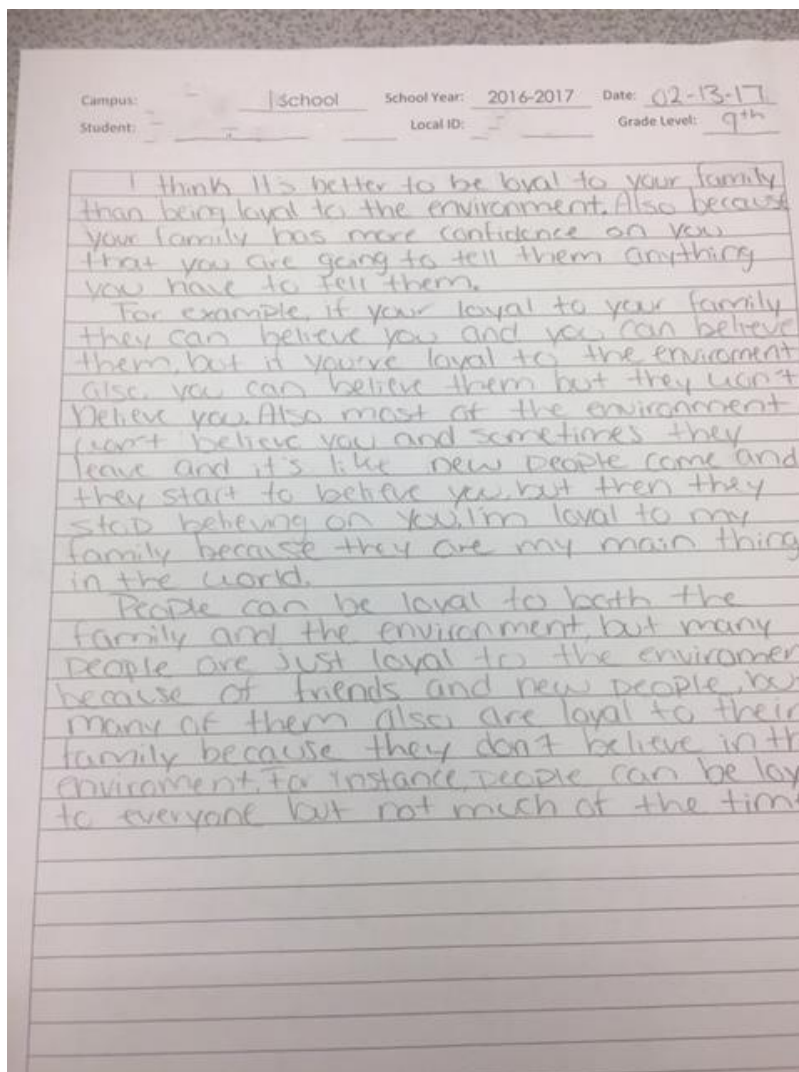 Campus: School School Year: 2016-2017 Date: 02-13-17
Student: Local ID: Grade Level: 9th
I think It's better to be loyal to your family
than being loyal to the environment. Also because
your family has more confidence on you
that you are going to tell them anything
you have to tell them.
For example, if your loyal to your family
they can believe you and you can believe
them, but if you're loyal to the enviroment
also, you can believe them but they won't
believe you. Also most of the environment
won't believe you and sometimes they
leave and it's like new people come and
they start to believe you, but then they
stop believing on you. I'm loyal to my
family because they are my main thing
in the world.
People can be loyal to both the
family and the environment, but many
people are just loyal to the enviromen
because of friends and new people, bu
many of them also, are loyal to their
family because they don't believe in th
enviroment. For instance, people can be loy
to everyone but not much of the time